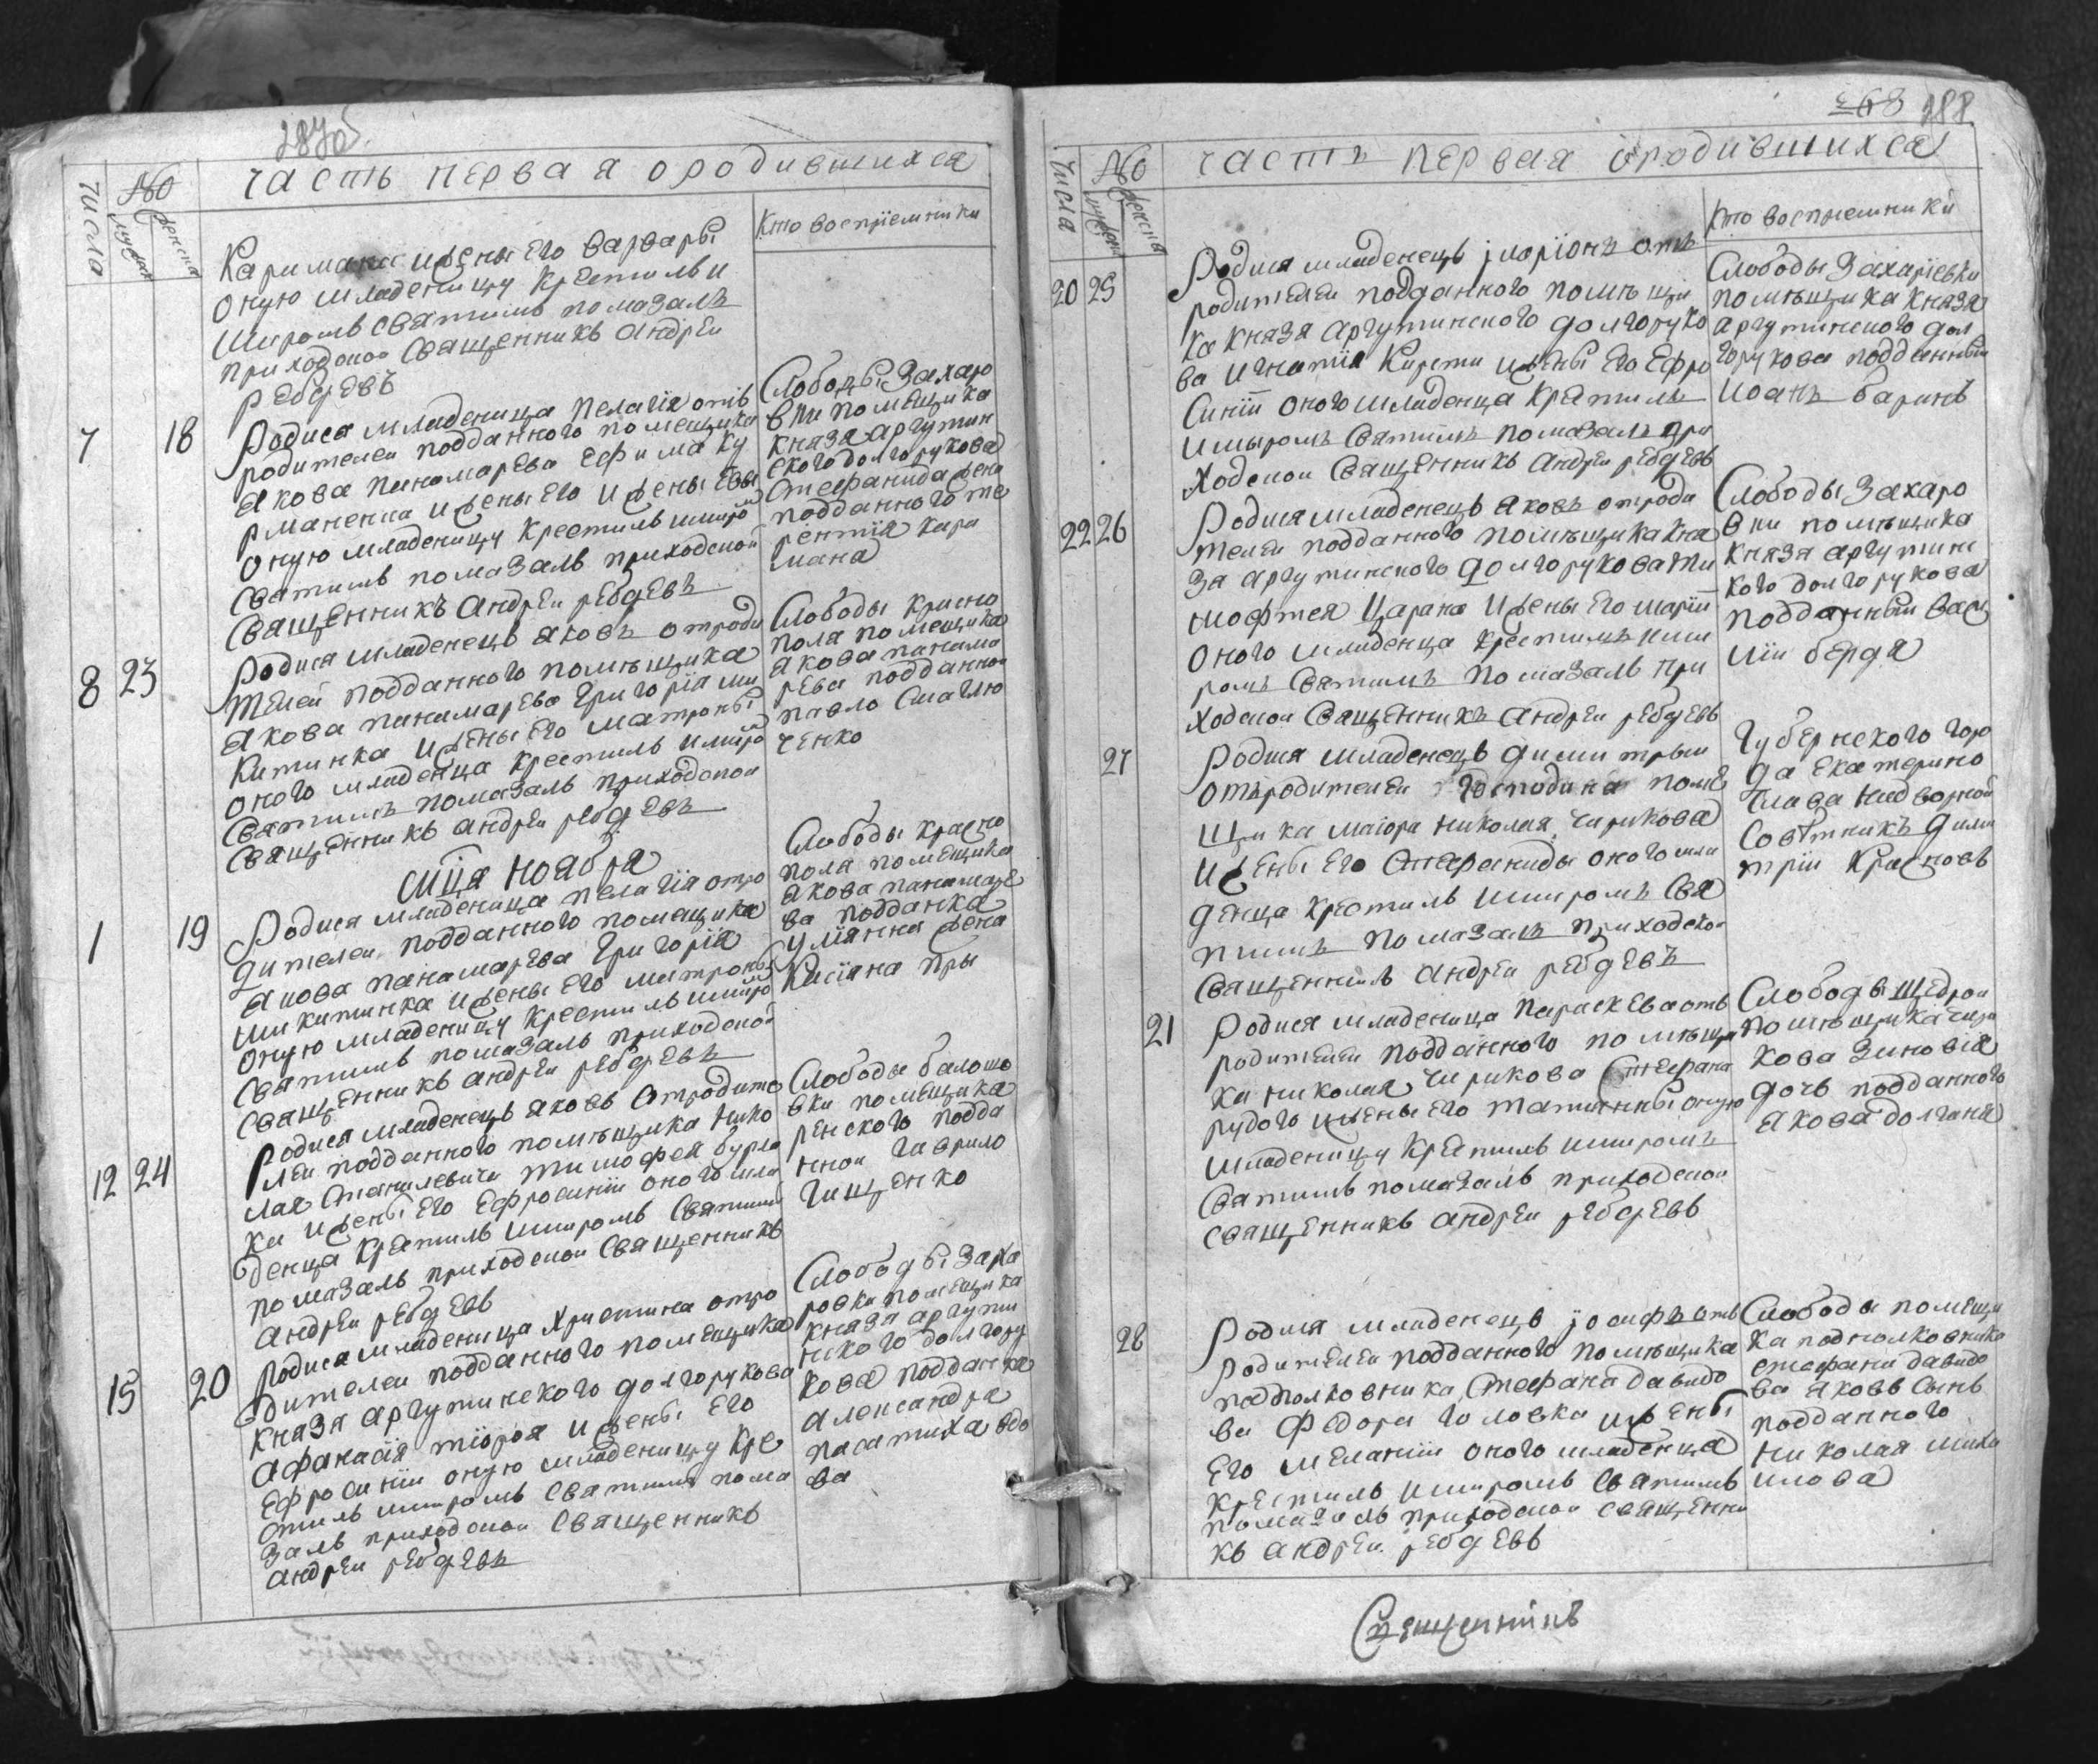 287об
часть первая о родившихся
числа
№
мужеска
женска
Кто восприемники
Каримана ижены Его варвары
оную младеницу крестилъ и
миромъ святимъ помазалъ
приходской Священникъ андреи
ребдевъ
7
18
Родися младеница пелагія отъ
родителеи подданного помещика
якова панамарева Ефима ку
рманенка ижены Его ижены Евы
оную младеницу крестилъ имиро
святимъ помазалъ приходской
Священникъ андреи ребдевъ
Слободы Захаро
вки помещика
князя аргутин
ского долгорукова
Стефанида жена
подданного те
рентія кари
мана
8
23
Родися младенецъ яковъ отроди
телей подданного помѣщика
якова панамарева григорія ми
китинка ижены Его матроны
оного младенца крестилъ имиро
святимъ помазалъ приходской
священникъ андреи ребдевъ
Слободы красно
поля помещика
якова панама
рева подданной
павло Смаглю
ченко
мца ноября
1
19
Родися младеница пелагія отро
дителеи подданного помещика
якова панамарева григорія
микитинка ижены Его матроны
оную младеницу крестилъ имиро
святимъ помазалъ приходской
священникъ андреи ребдевъ
Слободы красно
поля помещика
якова панамаре
ва подданка
улiянна жена
Касіяна при
12
24
Родися младенецъ яковъ отродите
леи подданного помѣщика нико
лая Стан левича тимофея бурла
ки ижены Его Ефросиніи оного мла
денца крестилъ имиромъ святимъ
помазалъ приходской священникъ
андреи ребдевъ
Слободы балошо
вки помещика
ренского подда
нной гаврило
гищенко
15
20
Родися младеница христина отро
дителеи подданного помещика
князя аргутинского долгорукова
афанасія ижены Его
Ефросиніи оную младеницу кре
стилъ имиромъ святимъ пома
залъ приходской священникъ
андреи ребдевъ
Слободы заха
ровки помещика
князя аргути
нского долгору
кова подданка
александра
вдо
ва
268 288
числа
№
мужеска
женска
часть первая о родившихся
Кто восприемники
20
25
Родися младенецъ іларіонъ отъ
родителеи подданного помѣщи
ка князя аргутинского долгоруко
ва игнатія Кирети ижены Его Ефро
синіи оного младенца крестилъ
имыромъ святимъ помазалъ при
ходской Священникъ андреи ребдевъ
Слободы Захаріевки
помѣщика князя
аргутинского дол
горукова подданный
иоанъ баринъ
22
26
Родися младенецъ яковъ отроди
телеи подданного помѣщика кня
зя аргутинского долгорукова ти
мофтея Царана ижены Его маріи
оного младенца крестилъ ими
ромъ святимъ помазалъ при
ходской священникъ андреи ребдевъ
Слободы Захаро
вки помѣщика
князя аргутинс
кого долгорукова
подданный васи
лій бердя
27
Родися младенецъ димитрыи
отъродителеи господина поме
щика маіора николая чирикова
ижены Его Стефаниды оного мла
денца крестилъ имиромъ свя
тимъ помазалъ приходской
священникъ андреи ребдевъ
Губернского горо
да Екатерино
слава надворной
Совѣтникъ дими
трій Красновъ
21
Родися младеница параскева отъ
родителеи подданного помѣщи
ка николая чирикова Стефана
рудого ижены Его татianны оную
младеницу крестилъ имиромъ
святимъ помазалъ приходской
священникъ андреи ребдевъ
Слободы щедрой
помѣщика чири
кова Зиновія
дочь подданного
якова долганя
28
Родися младенецъ іосифъ отъ
родителеи подданного помѣщика
подполковника Стефана давидо
ва Федора головка ижены
Его меланіи оного младенца
крестилъ имиромъ святимъ
помазалъ приходской священни
къ андреи ребдевъ
Слободы помещи
ка подполковника
стефана давидо
ва яковъ сынъ
подданного
николая миха
илова
Священникъ